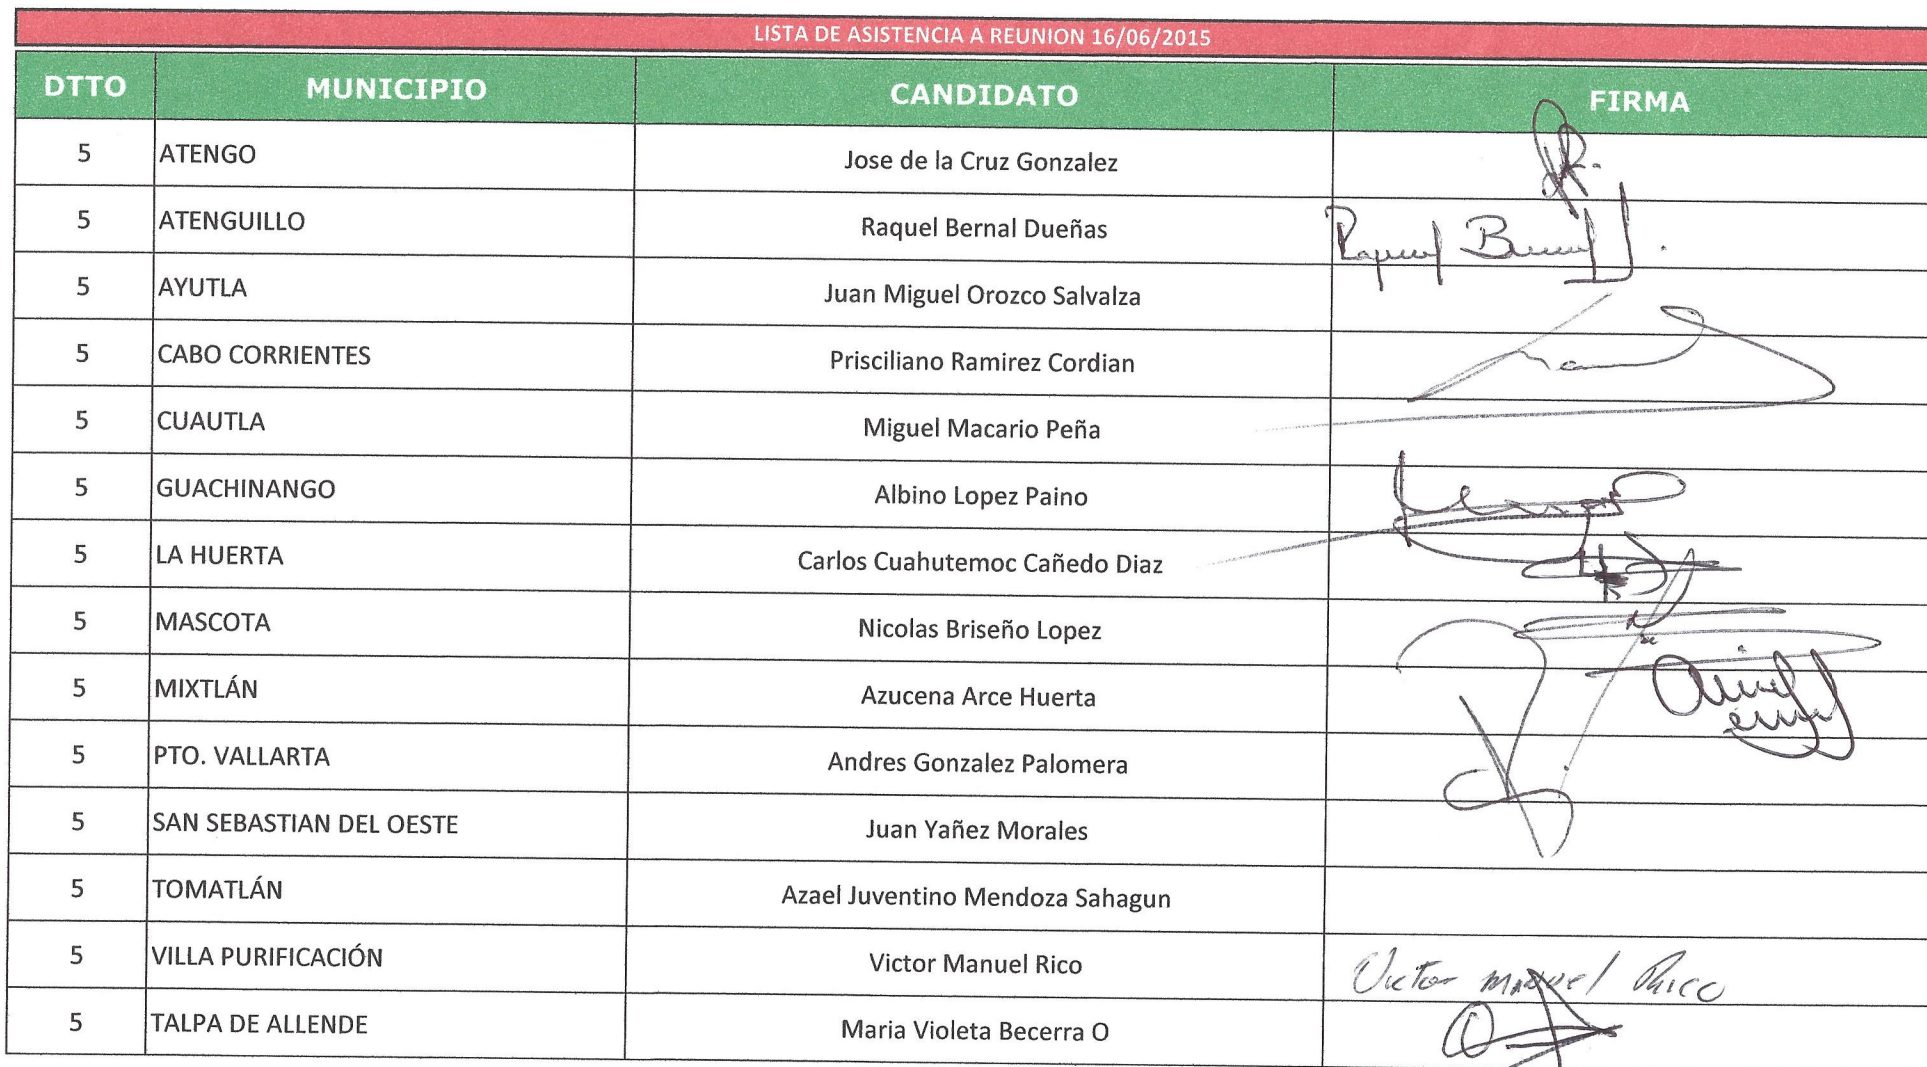 LISTA DE ASISTENCIA A REUNION 16/06/2015
DTTO MUNICIPIO CANDIDATO FIRMA
5 ATENGO Jose de la Cruz Gonzalez
5 ATENGUILLO Raquel Bernal Dueñas Raquel Bernal
5 AYUTLA Juan Miguel Orozco Salvalza
5 CABO CORRIENTES Prisciliano Ramirez Cordian
5 CUAUTLA Miguel Macario Peña
5 GUACHINANGO Albino Lopez Paino
5 LA HUERTA Carlos Cuahutemoc Cañedo Diaz
5 MASCOTA Nicolas Briseño Lopez
5 MIXTLÁN Azucena Arce Huerta
5 PTO. VALLARTA Andres Gonzalez Palomera
5 SAN SEBASTIAN DEL OESTE Juan Yañez Morales
5 TOMATLÁN Azael Juventino Mendoza Sahagun
5 VILLA PURIFICACIÓN Victor Manuel Rico Victor manuel Rico
5 TALPA DE ALLENDE Maria Violeta Becerra O